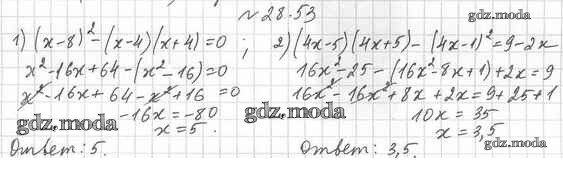 № 28.53
gdz.moda
1) (x-8)² - (x-4)(x+4) = 0 ;
x² - 16x + 64 - (x² - 16) = 0
x² - 16x + 64 - x² + 16 = 0
gdz.moda
-16x = -80
x = 5.
Ответ: 5.
2) (4x-5)(4x+5) - (4x-1)² = 9 - 2x
16x² - 25 - (16x² - 8x + 1) + 2x = 9
16x² - 16x² + 8x + 2x = 9 + 25 + 1
gdz.moda
10x = 35
x = 3,5
gdz.moda
Ответ: 3,5.